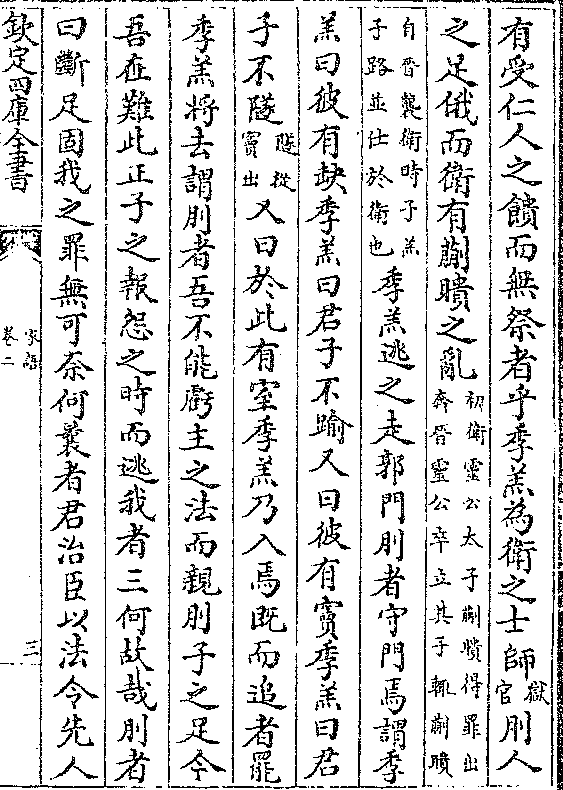 有受仁人之饋而無祭者乎季羔為衛之士師獄官刖人
之足俄而衛有蒯聵之亂初衛靈公太子蒯聵得罪出奔晉靈公卒立其子輒蒯聵
自晉襲衛時子羔子路並仕於衛也季羔逃之走郭門刖者守門焉謂季
羔曰彼有缺季羔曰君子不踰又曰彼有竇季羔曰君
子不隧隧從竇出又曰於此有室季羔乃入焉既而追者罷
季羔將去謂刖者吾不能虧主之法而親刖子之足今
吾在難此正子之報怨之時而逃我者三何故哉刖者
曰斷足固我之罪無可奈何曩者君治臣以法令先人
欽定四庫全書
家語
卷二
三